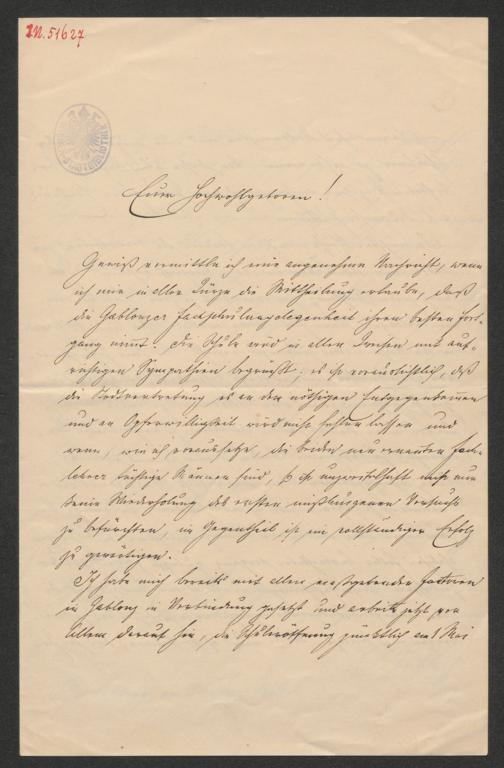 IN. 51627
Euer Hochwohlgeboren!
Gewiß vermittle ich eine angenehme Nachricht, wenn
ich mir in aller Kürze die Mittheilung erlaube, daß
die Gablonzer Fachschulangelegenheit ihren besten Fort-
gang nimmt. Die Schule wird in allen Kreisen mit auf-
richtigen Sympathien begrüßt; es ist voraussichtlich, daß
die Stadtvertretung es an dem nöthigen Entgegenkommen
und an Opferwilligkeit wird nicht fehlen lassen und
wenn, wie ich voraussetze, die beiden neu ernannten Fach-
lehrer tüchtige Männer sind, so ist unzweifelhaft nicht nur
keine Wiederholung des ersten mißlungenen Versuchs
zu befürchten, im Gegentheil ist ein vollständiger Erfolg
zu gewärtigen.
Ich habe mich bereits mit allen maßgebenden Factoren
in Gablonz in Verbindung gesetzt und arbeite jetzt vor
Allem darauf hin, die Schuleröffnung pünktlich am 1 Mai